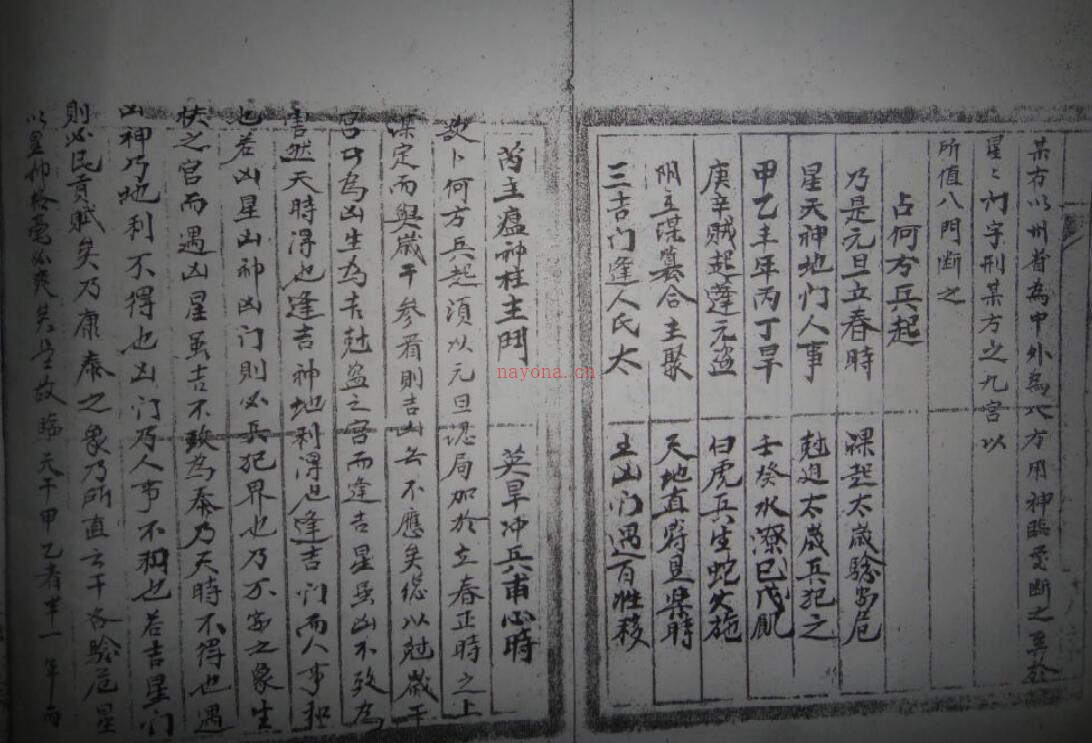 某右以州省為中外為八方用神臨
星之 字刑某方之九宮以
所值八門斷之
占何方兵起
乃是元旦立春時 課起太歲驗安危
星天神地门人事 尅迫太歲兵犯之
甲乙主年丙丁旱 壬癸水潦巳戊飢
庚辛賊起蓬元盗 白虎兵生蛇火施
陰主謀篡合主聚 天地直符見樂時
三吉门逢人民太 五凶门遇百姓移
芮主瘟神柱主鬥 英旱冲兵甫心時
欲卜何方兵起須以元旦 局加於立春正時之上
課定而與歲干參看則吉凶無不應矣總以尅歲干
宮 為凶生為吉尅 之宮而逢吉星虽凶不致為
害然天時得也逢吉神地利得也逢吉门而人事和
也若凶星凶神凶门則必兵犯界也乃不安之象生
扶之宮而遇凶星虽吉不致為泰乃天時不得也遇
凶神乃地利不得也凶门乃人事不和也若吉星门
則必民貢賦矣乃康泰之象乃所直云干各驗危星
以星 毫必爽矣 故臨天干甲乙者半一年而
nayona.cn